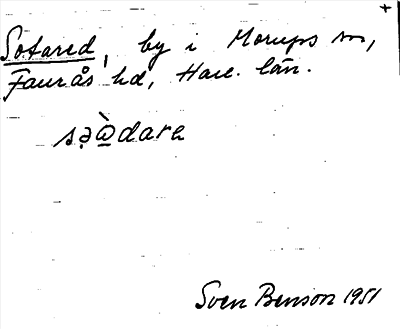 Sotared, by i Morups sn,
Faurås hd, Hall. län.
sə̣ὰ̱dara
Sven Benson 1951